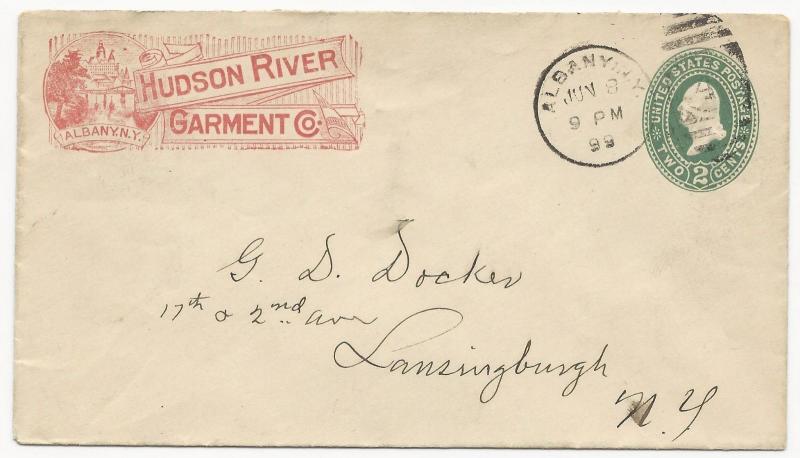 HUDSON RIVER
GARMENT CO.
ALBANY, N.Y.
ALBANY, N.Y.
JUN 8
9 PM
99
UNITED STATES POSTAGE
TWO 2 CENTS
G. D. Docker
17th & 2nd ave
Lansingburgh
N. Y